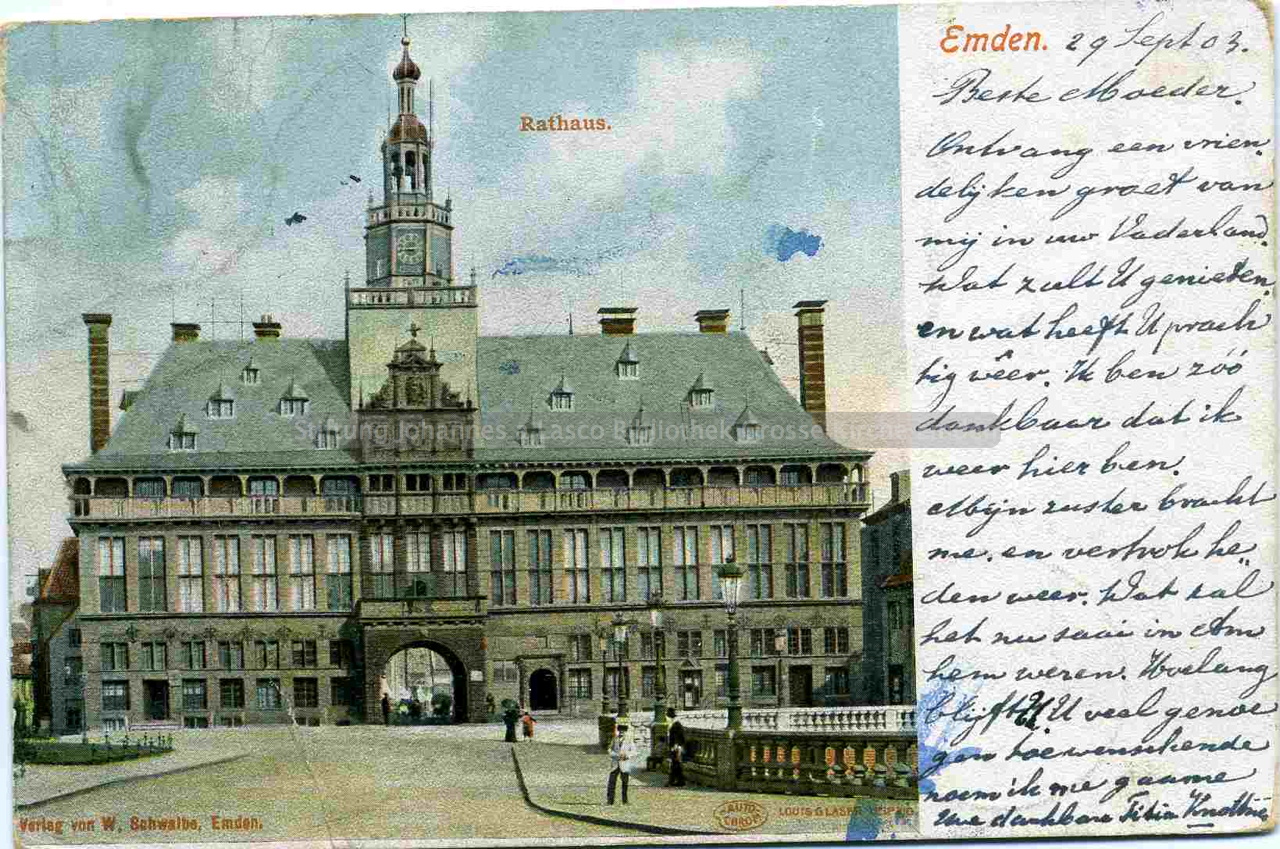 Rathaus.
Emden. 29 Sept 03.
Beste Moeder.
Ontvang een vrien„
delijken groet van
mij in uw Vaderland.
Wat zult U genieten,
en wat heeft U prach
tig wêer. Ik ben zóó
dankbaar dat ik
weer hier ben.
Mijn zuster bracht
me, en vertrok he„
den weer. Wat zal
het nu saai in Arn
hem weren. Hoelang
blijft U? U veel genoe
gen toewenschende
noem ik me gaarne
Uwe dankbare Titia
Stiftung Johannes a Lasco Bibliothek Grosse
Verlag von W. Schwalbe, Emden.
AUTO CHROM
LOUIS GLASER, LEIPZIG